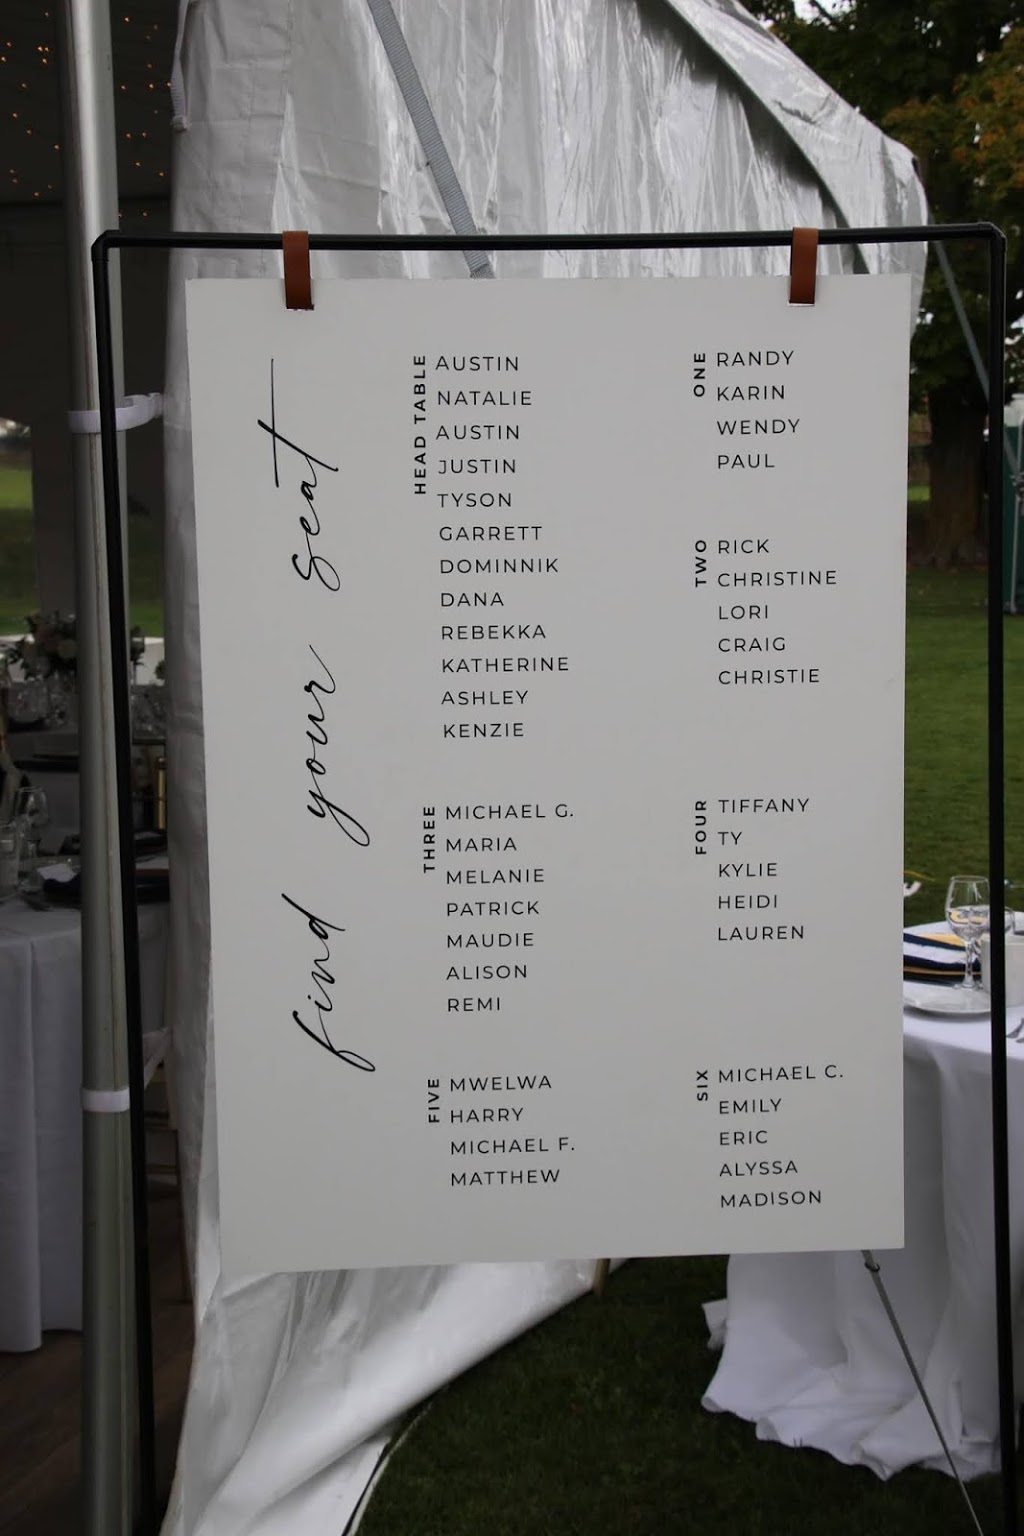 find your seat
HEAD TABLE
AUSTIN
NATALIE
AUSTIN
JUSTIN
TYSON
GARRETT
DOMINNIK
DANA
REBEKKA
KATHERINE
ASHLEY
KENZIE
ONE
RANDY
KARIN
WENDY
PAUL
TWO
RICK
CHRISTINE
LORI
CRAIG
CHRISTIE
THREE
MICHAEL G.
MARIA
MELANIE
PATRICK
MAUDIE
ALISON
REMI
FOUR
TIFFANY
TY
KYLIE
HEIDI
LAUREN
FIVE
MWELWA
HARRY
MICHAEL F.
MATTHEW
SIX
MICHAEL C.
EMILY
ERIC
ALYSSA
MADISON